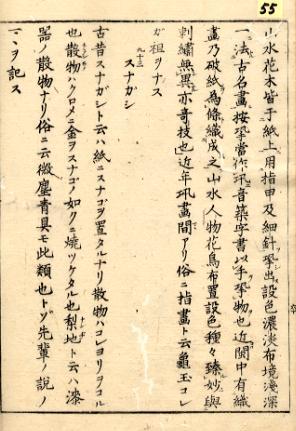 55
山水花木皆于紙上用指甲及細針㧬出設色濃淡布境淺深
一法古名畫按㧬當作㺬音築字書以手㧬物也近閩中有織
畫乃破紙為條織成之山水人物花鳥布置設色種々臻妙與
刺繡無異亦哥技也近年㺬畫間アリ俗ニ指畫ト云龜玉コレ
ガ祖ヲナス
九十三
スナガシ
古昔スナガシト云ハ紙ニスナゴヲ置タルナリ散物ハコレヨリヲコル
也散物ハクロメニ金ヲスナゴノ如クニ燒ツケタル也梨地ト云ハ漆
器ノ散物ナリ俗ニ云微塵青貝モ此類也トゾ先輩ノ説ノ
マヽヲ記ス